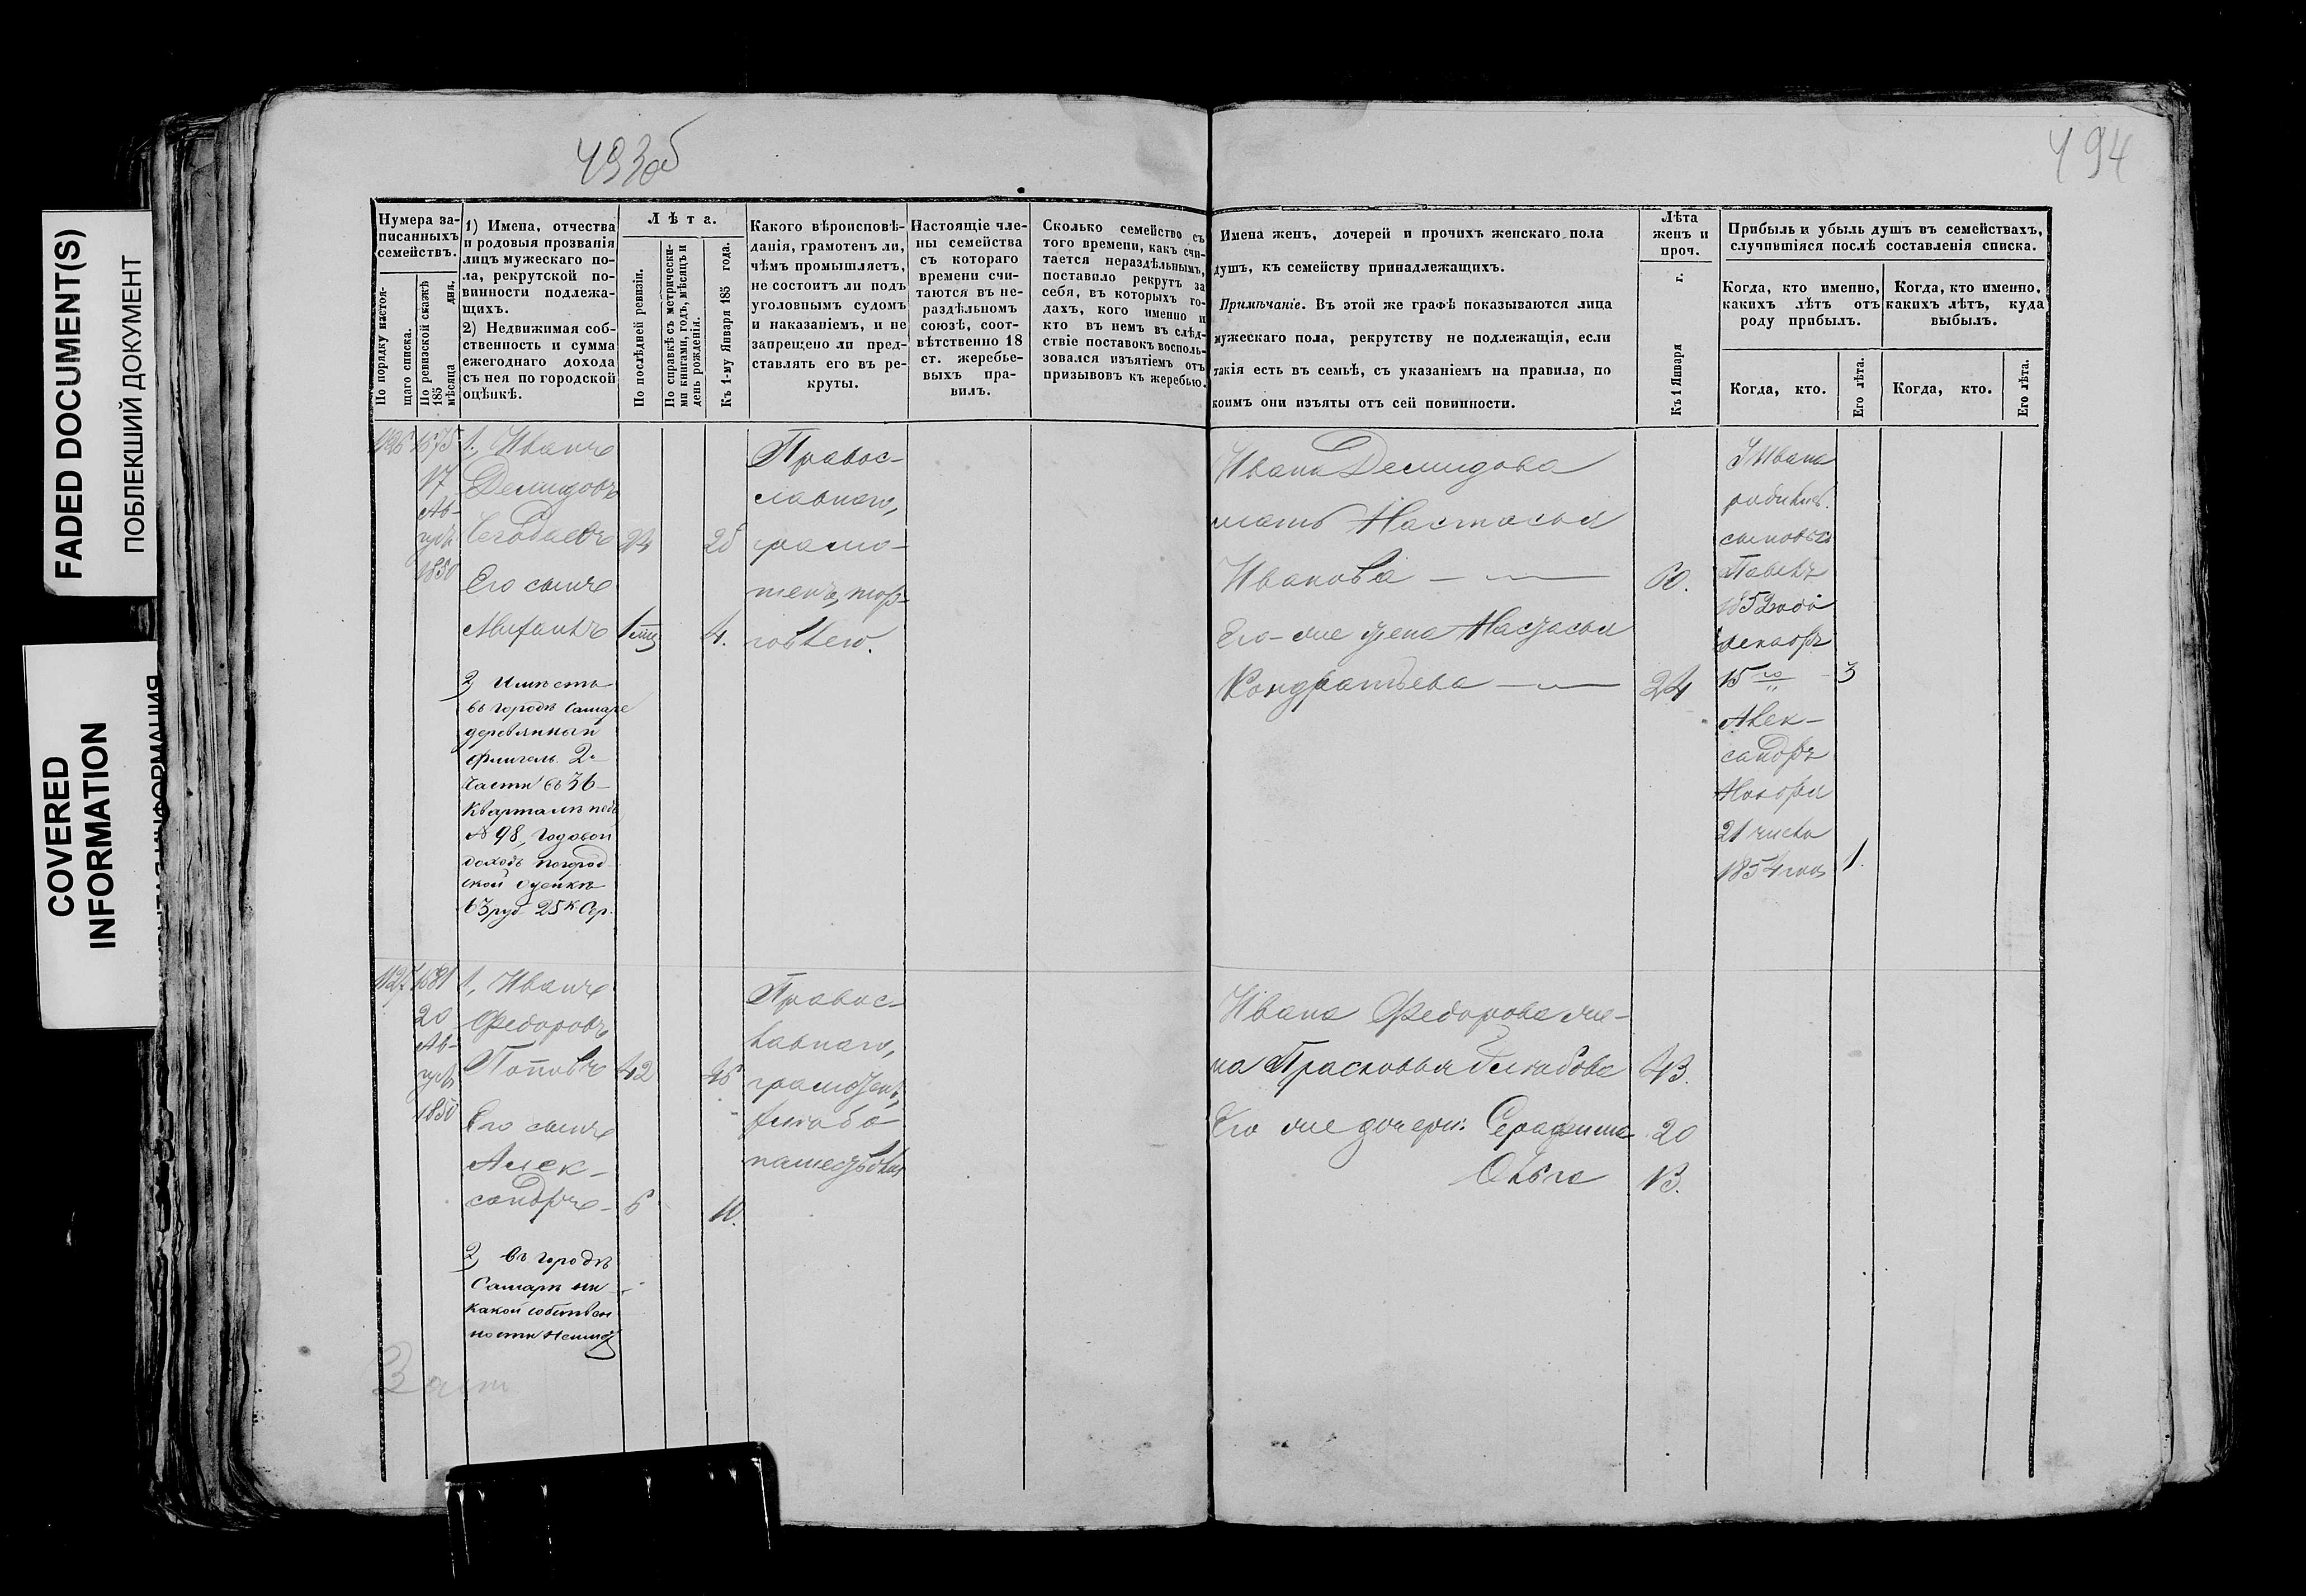 FADED DOCUMENT(S)
ПОБЛЕКШИЙ ДОКУМЕНТ
COVERED
INFORMATION
493об
494
Нумера за-
писанныхъ
семействъ.
По порядку настоя-
щаго списка.
По ревизской скажѣ
185 дня,
мѣсяца
1) Имена, отчества
и родовыя прозванія
лицъ мужескаго по-
ла, рекрутской по-
винности подлежа-
щихъ.
2) Недвижимая соб-
ственность и сумма
ежегоднаго дохода
съ нея по городской
оцѣнкѣ.
Лѣта.
По послѣдней ревизіи.
По справкѣ съ метрически-
ми книгами, годъ, мѣсяцъ и
день рожденія.
Къ 1-му Января 185 года.
Какого вѣроисповѣ-
данія, грамотенъ ли,
чѣмъ промышляетъ,
не состоитъ ли подъ
уголовнымъ судомъ
и наказаніемъ, и не
запрещено ли пред-
ставлять его въ ре-
круты.
Настоящіе чле-
ны семейства
съ котораго
времени счи-
таются въ не-
раздѣльномъ
союзѣ, соот-
вѣтственно 18
ст. жеребье-
выхъ пра-
вилъ.
Сколько семейство съ
того времени, какъ счи-
тается нераздѣльнымъ,
поставило рекрутъ за
себя, въ которыхъ го-
дахъ, кого именно и
кто въ немъ въ слѣд-
ствіе поставокъ восполь-
зовался изъятіемъ отъ
призывовъ къ жеребью.
Имена женъ, дочерей и прочихъ женскаго пола
душъ, къ семейству принадлежащихъ.
Примѣчаніе. Въ этой же графѣ показываются лица
мужескаго пола, рекрутству не подлежащія, если
такія есть въ семьѣ, съ указаніемъ на правила, по
коимъ они изъяты отъ сей повинности.
Лѣта
женъ и
проч.
Къ 1 Января г.
Прибыль и убыль душъ въ семействахъ,
случившіяся послѣ составленія списка.
Когда, кто именно,
какихъ лѣтъ отъ
роду прибылъ.
Когда, кто именно,
какихъ лѣтъ, куда
выбылъ.
Когда, кто.
Его лѣта.
Когда, кто.
Его лѣта.
1126 1675
17
Ав-
густ
1850
1., Иванъ
Демидовъ
24 28
Его сынъ
Михаилъ 4.
2, Имѣетъ
въ городѣ Самаре
деревянный
флигель 2й
части въ 36
кварталѣ подъ
№ 98, годовой
доходъ по город-
ской оценкѣ
63 руб 25 к. Сер.
Правос-
лавнаго,
грамо-
тенъ, тор-
говлею.
Ивана Демидова
мать Настасья
Иванова 60.
Его-же жена Настасья
Кондратьева 24
У Ивана
родились
сыновья
Павелъ
1852 года
декабря
15го 3
Алек-
сандръ
Ноября
21 числа
1854 года 1.
1127 1681
20
Ав-
густ
1850
1, Иванъ
Федоровъ
Поповъ 42 46
Его сынъ
Алек-
сандръ 6 10.
2, въ городѣ
Самарѣ ни-
какой собствен
ности не имѣетъ
Правос-
лавнаго,
грамотенъ,
Ивана Федорова же-
на Прасковья 43.
Его же дочери: Серафима 20
Ольга 13.